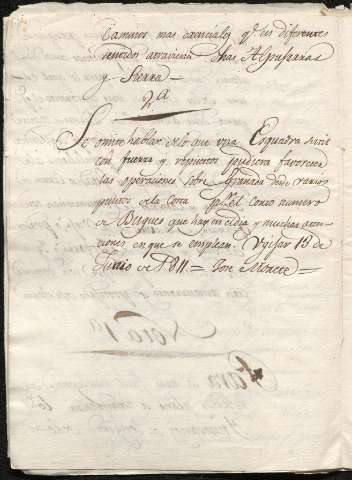 Caminos mas esenciales qe. en diferentes
sentidos atraviesan dhas Alpujarras
y Sierra
2.a
Se omite hablar de lo que una Esquadra sutil
con fuerza y repuestos pudiera favorecer
las operaciones sobre Granada desde varios
puntos de la Costa pr. el corto numero
de Buques que hay en Cadiz y muchas aten-
ciones en que se emplean. Ugijar 18 de
Junio de 1811 = Jose Morete =
Nota 1.a
Para